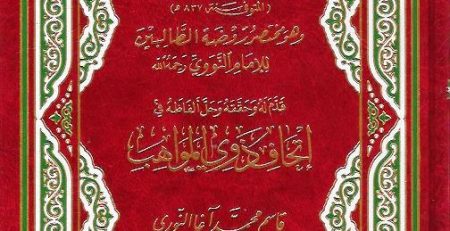 (المتوفى سنة ٨٣٧ هـ)
وهو مختصر روضة الطالبين
للإمام النووي رحمه الله
قدم له وحققه وحل ألفاظه في
إتحاف ذوي المواهب
قاسم محمد آغا النوري